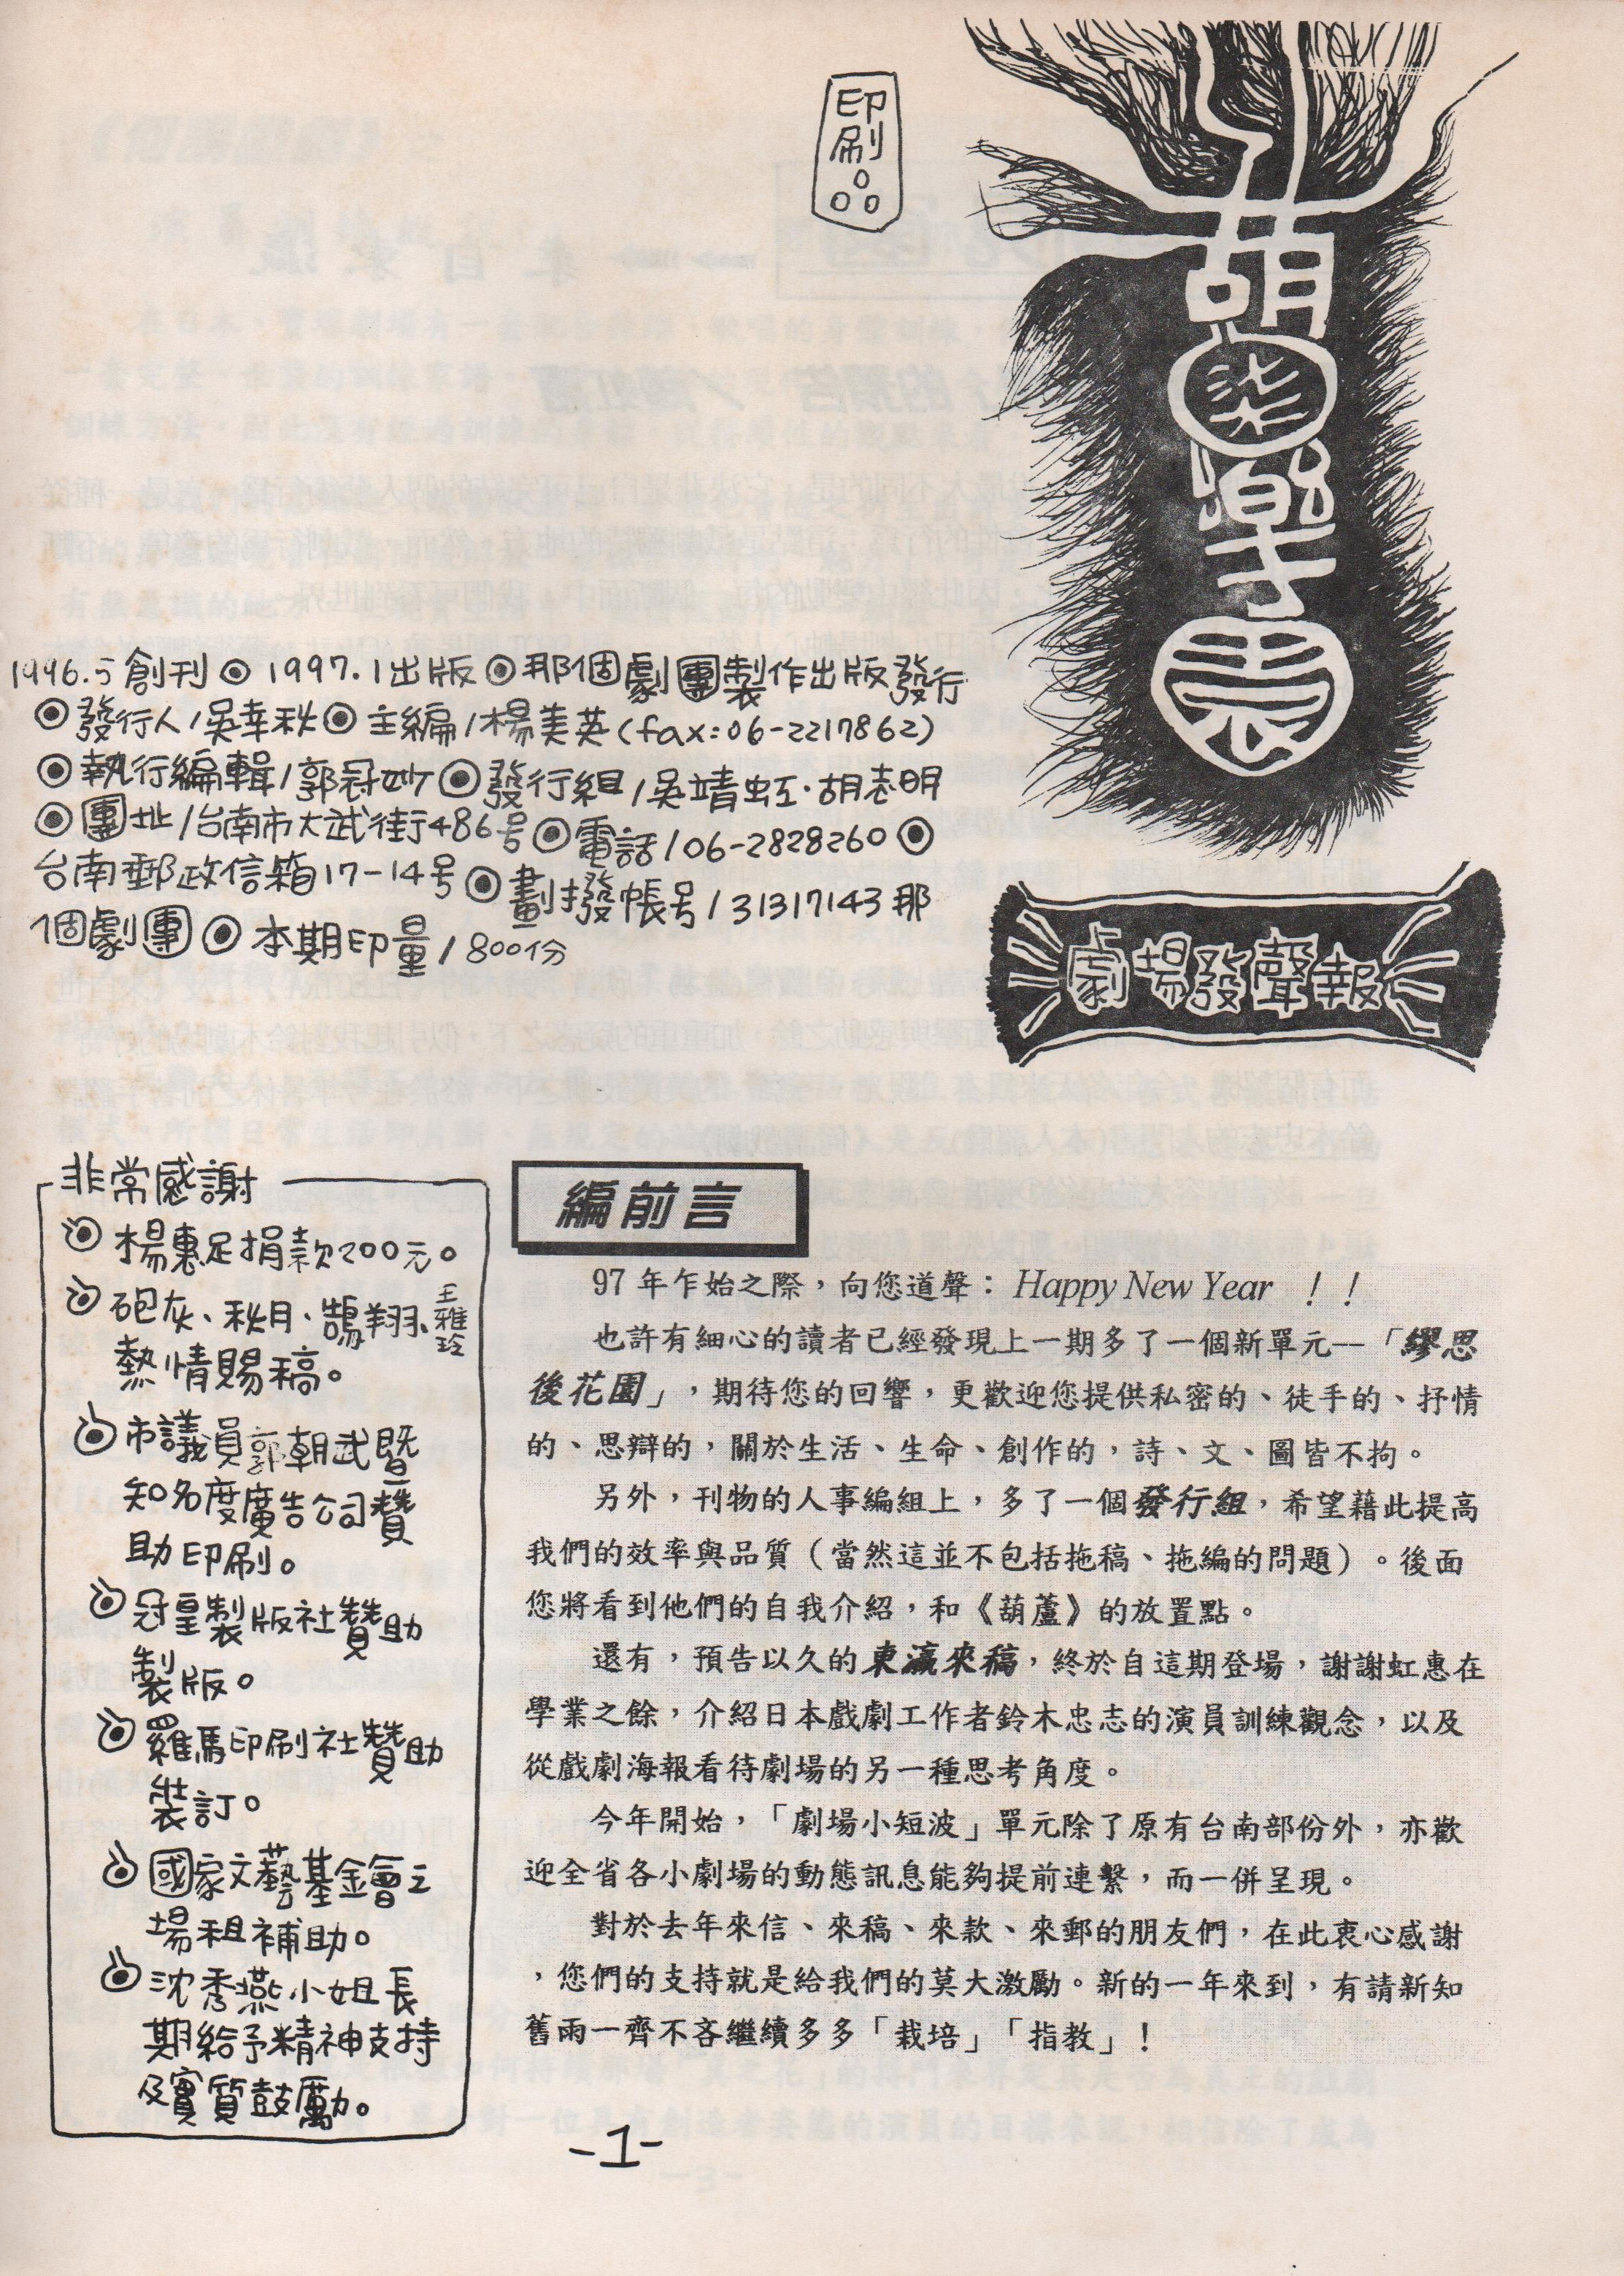 印刷
劇場發聲報
1996.5創刊◎1997.1出版◎那個劇團製作出版發行
◎發行人/吳幸秋◎主編/楊美英(fax:06-2217862)
◎執行編輯/郭冠妙◎發行組/吳靖虹·胡志明
◎團址/台南市大武街486号◎電話/06-2828260◎
台南郵政信箱17-14号◎劃撥帳号/31317143那
個劇團◎本期印量/800份
非常感謝
楊惠足捐款200元。
砲灰、秋月、鵠翔、王雅玲
熱情賜稿。
市議員郭朝武暨
知名度廣告公司贊
助印刷。
冠皇製版社贊助
製版。
羅馬印刷社贊助
裝訂。
國家文藝基金會之
場租補助。
沈秀燕小姐長
期給予精神支持
及實質鼓勵。
編前言
97年乍始之際，向您道聲：Happy New Year ！！
也許有細心的讀者已經發現上一期多了一個新單元--「繆思
後花園」，期待您的回響，更歡迎您提供私密的、徒手的、抒情
的、思辯的，關於生活、生命、創作的，詩、文、圖皆不拘。
另外，刊物的人事編組上，多了一個發行組，希望藉此提高
我們的效率與品質（當然這並不包括拖稿、拖編的問題）。後面
您將看到他們的自我介紹，和《葫蘆》的放置點。
還有，預告以久的東瀛來稿，終於自這期登場，謝謝虹惠在
學業之餘，介紹日本戲劇工作者鈴木忠志的演員訓練觀念，以及
從戲劇海報看待劇場的另一種思考角度。
今年開始，「劇場小短波」單元除了原有台南部份外，亦歡
迎全省各小劇場的動態訊息能夠提前連繫，而一併呈現。
對於去年來信、來稿、來款、來郵的朋友們，在此衷心感謝
，您們的支持就是給我們的莫大激勵。新的一年來到，有請新知
舊雨一齊不吝繼續多多「栽培」「指教」！
-1-